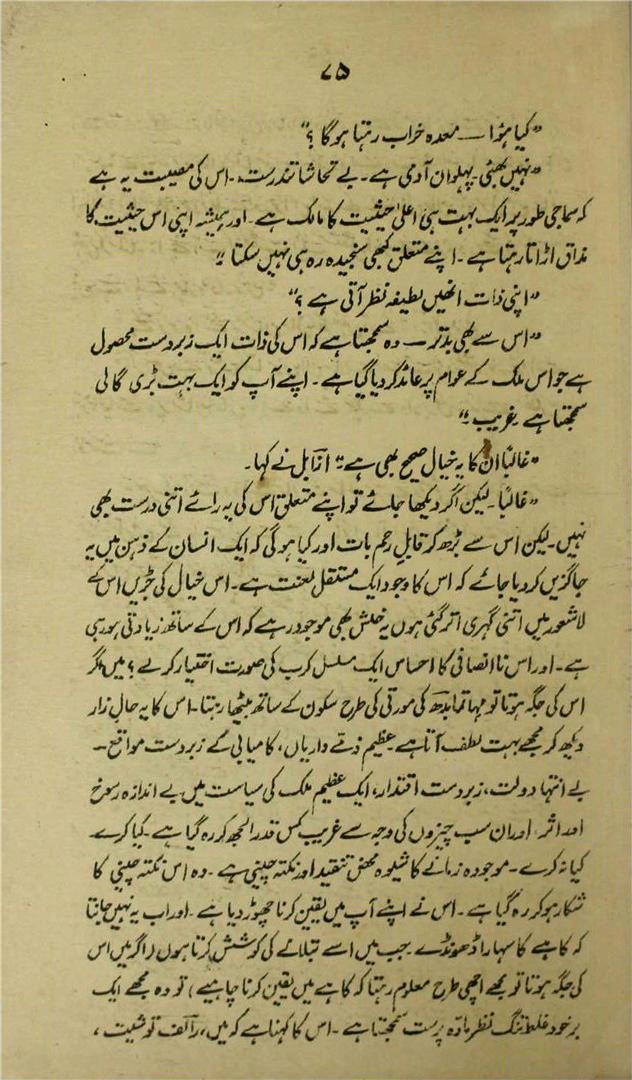 ۷۵
"کیا ہؤا — معدہ خراب رہتا ہوگا ؟"
"نہیں بھئی۔ پہلوان آدمی ہے۔ بے تحاشا تندرست۔ اس کی مصیبت یہ ہے
کہ سماجی طور پر ایک بہت ہی اعلیٰ حیثیت کا مالک ہے۔ اور ہمیشہ اپنی اس حیثیت کا
مذاق اڑاتا رہتا ہے۔ اپنے متعلق کبھی سنجیدہ رہ ہی نہیں سکتا۔"
"اپنی ذات انھیں لطیفہ نظر آتی ہے ؟"
"اس سے بھی بدتر — وہ سمجھتا ہے کہ اس کی ذات ایک زبردست محصول
ہے جو اس ملک کے عوام پر عائد کر دیا گیا ہے۔ اپنے آپ کو ایک بہت بڑی گالی
سمجھتا ہے غریب۔"
"غالباً ان کا یہ خیال صحیح بھی ہے" ازابل نے کہا۔
"غالباً۔ لیکن اگر دیکھا جائے تو اپنے متعلق اس کی یہ رائے اتنی درست بھی
نہیں۔ لیکن اس سے بڑھ کر قابلِ رحم بات اور کیا ہوگی کہ ایک انسان کے ذہن میں یہ
جاگزیں کر دیا جائے کہ اس کا وجود ایک مستقل لعنت ہے۔ اس خیال کی جڑیں اس کے
لاشعور میں اتنی گہری اتر گئی ہوں یہ خلش بھی موجود رہے کہ اس کے ساتھ زیادتی ہو رہی
ہے۔ اور اس ناانصافی کا احساس ایک مسلسل کرب کی صورت اختیار کر لے ؟ میں اگر
اس کی جگہ ہوتا تو مہاتما بدھ کی مورتی کی طرح سکون کے ساتھ بیٹھا رہتا۔ اس کا یہ حالِ زار
دیکھ کر مجھے بہت لطف آتا ہے۔ عظیم ذمے داریاں، کامیابی کے زبردست مواقع۔
بے انتہا دولت، زبردست اقتدار، ایک عظیم ملک کی سیاست میں بے اندازہ رسوخ
اور اثر۔ اور ان سب چیزوں کی وجہ سے غریب کس قدر الجھ کر رہ گیا ہے۔ کیا کرے
کیا نہ کرے۔ موجودہ زمانے کا شیوہ محض تنقید اور نکتہ چینی ہے۔ وہ اس نکتہ چینی کا
شکار ہو کر رہ گیا ہے۔ اس نے اپنے آپ میں یقین کرنا چھوڑ دیا ہے۔ اور اب یہ نہیں جانتا
کہ کاہے کا سہارا ڈھونڈے۔ جب میں اسے بتلانے کی کوشش کرتا ہوں (اگر میں اس
کی جگہ ہوتا تو مجھے اچھی طرح معلوم رہتا کہ کاہے میں یقین کرنا چاہیے) تو وہ مجھے ایک
بر خود غلط تنگ نظر مادّہ پرست سمجھتا ہے۔ اس کا کہنا ہے کہ میں، رالف توشیت،